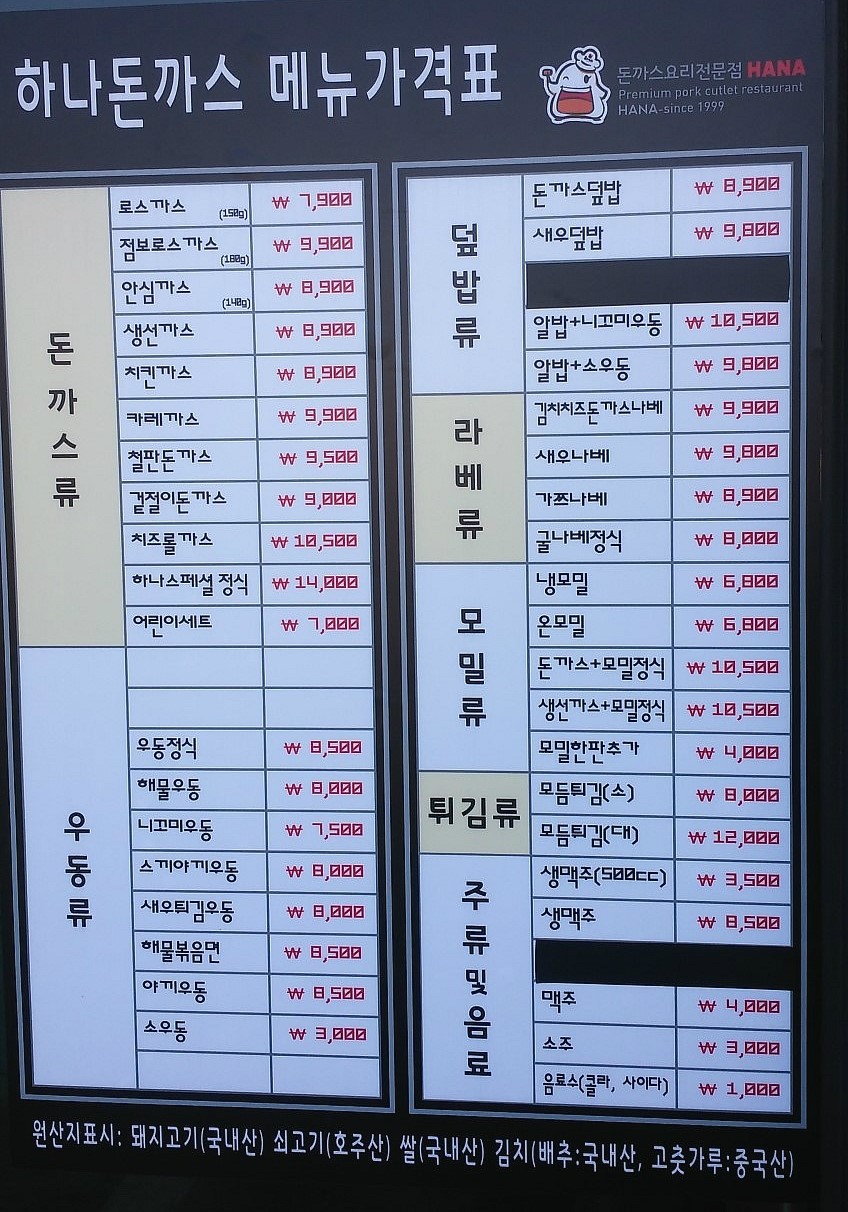 하나돈까스 메뉴가격표
돈까스요리전문점 HANA
Premium pork cutlet restaurant
HANA-since 1999
돈까스류
로스까스 (150g) ₩ 7,900
점보로스까스 (180g) ₩ 9,900
안심까스 (140g) ₩ 8,900
생선까스 ₩ 8,900
치킨까스 ₩ 8,900
카레까스 ₩ 9,900
철판돈까스 ₩ 9,500
겉절이돈까스 ₩ 9,000
치즈롤까스 ₩ 10,500
하나스페셜 정식 ₩ 14,000
어린이세트 ₩ 7,000
우동류
우동정식 ₩ 8,500
해물우동 ₩ 8,000
니꼬미우동 ₩ 7,500
스끼야끼우동 ₩ 8,000
새우튀김우동 ₩ 8,000
해물볶음면 ₩ 8,500
야끼우동 ₩ 8,500
소우동 ₩ 3,000
덮밥류
돈까스덮밥 ₩ 8,900
새우덮밥 ₩ 9,800
알밥+니꼬미우동 ₩ 10,500
알밥+소우동 ₩ 9,800
라베류
김치치즈돈까스나베 ₩ 9,900
새우나베 ₩ 9,800
가쯔나베 ₩ 8,900
굴나베정식 ₩ 8,000
모밀류
냉모밀 ₩ 6,800
온모밀 ₩ 6,800
돈까스+모밀정식 ₩ 10,500
생선까스+모밀정식 ₩ 10,500
모밀한판추가 ₩ 4,000
튀김류
모듬튀김(소) ₩ 8,000
모듬튀김(대) ₩ 12,000
주류및음료
생맥주(500cc) ₩ 3,500
생맥주 ₩ 8,500
맥주 ₩ 4,000
소주 ₩ 3,000
음료수(콜라, 사이다) ₩ 1,000
원산지표시: 돼지고기(국내산) 쇠고기(호주산) 쌀(국내산) 김치(배추:국내산, 고춧가루:중국산)